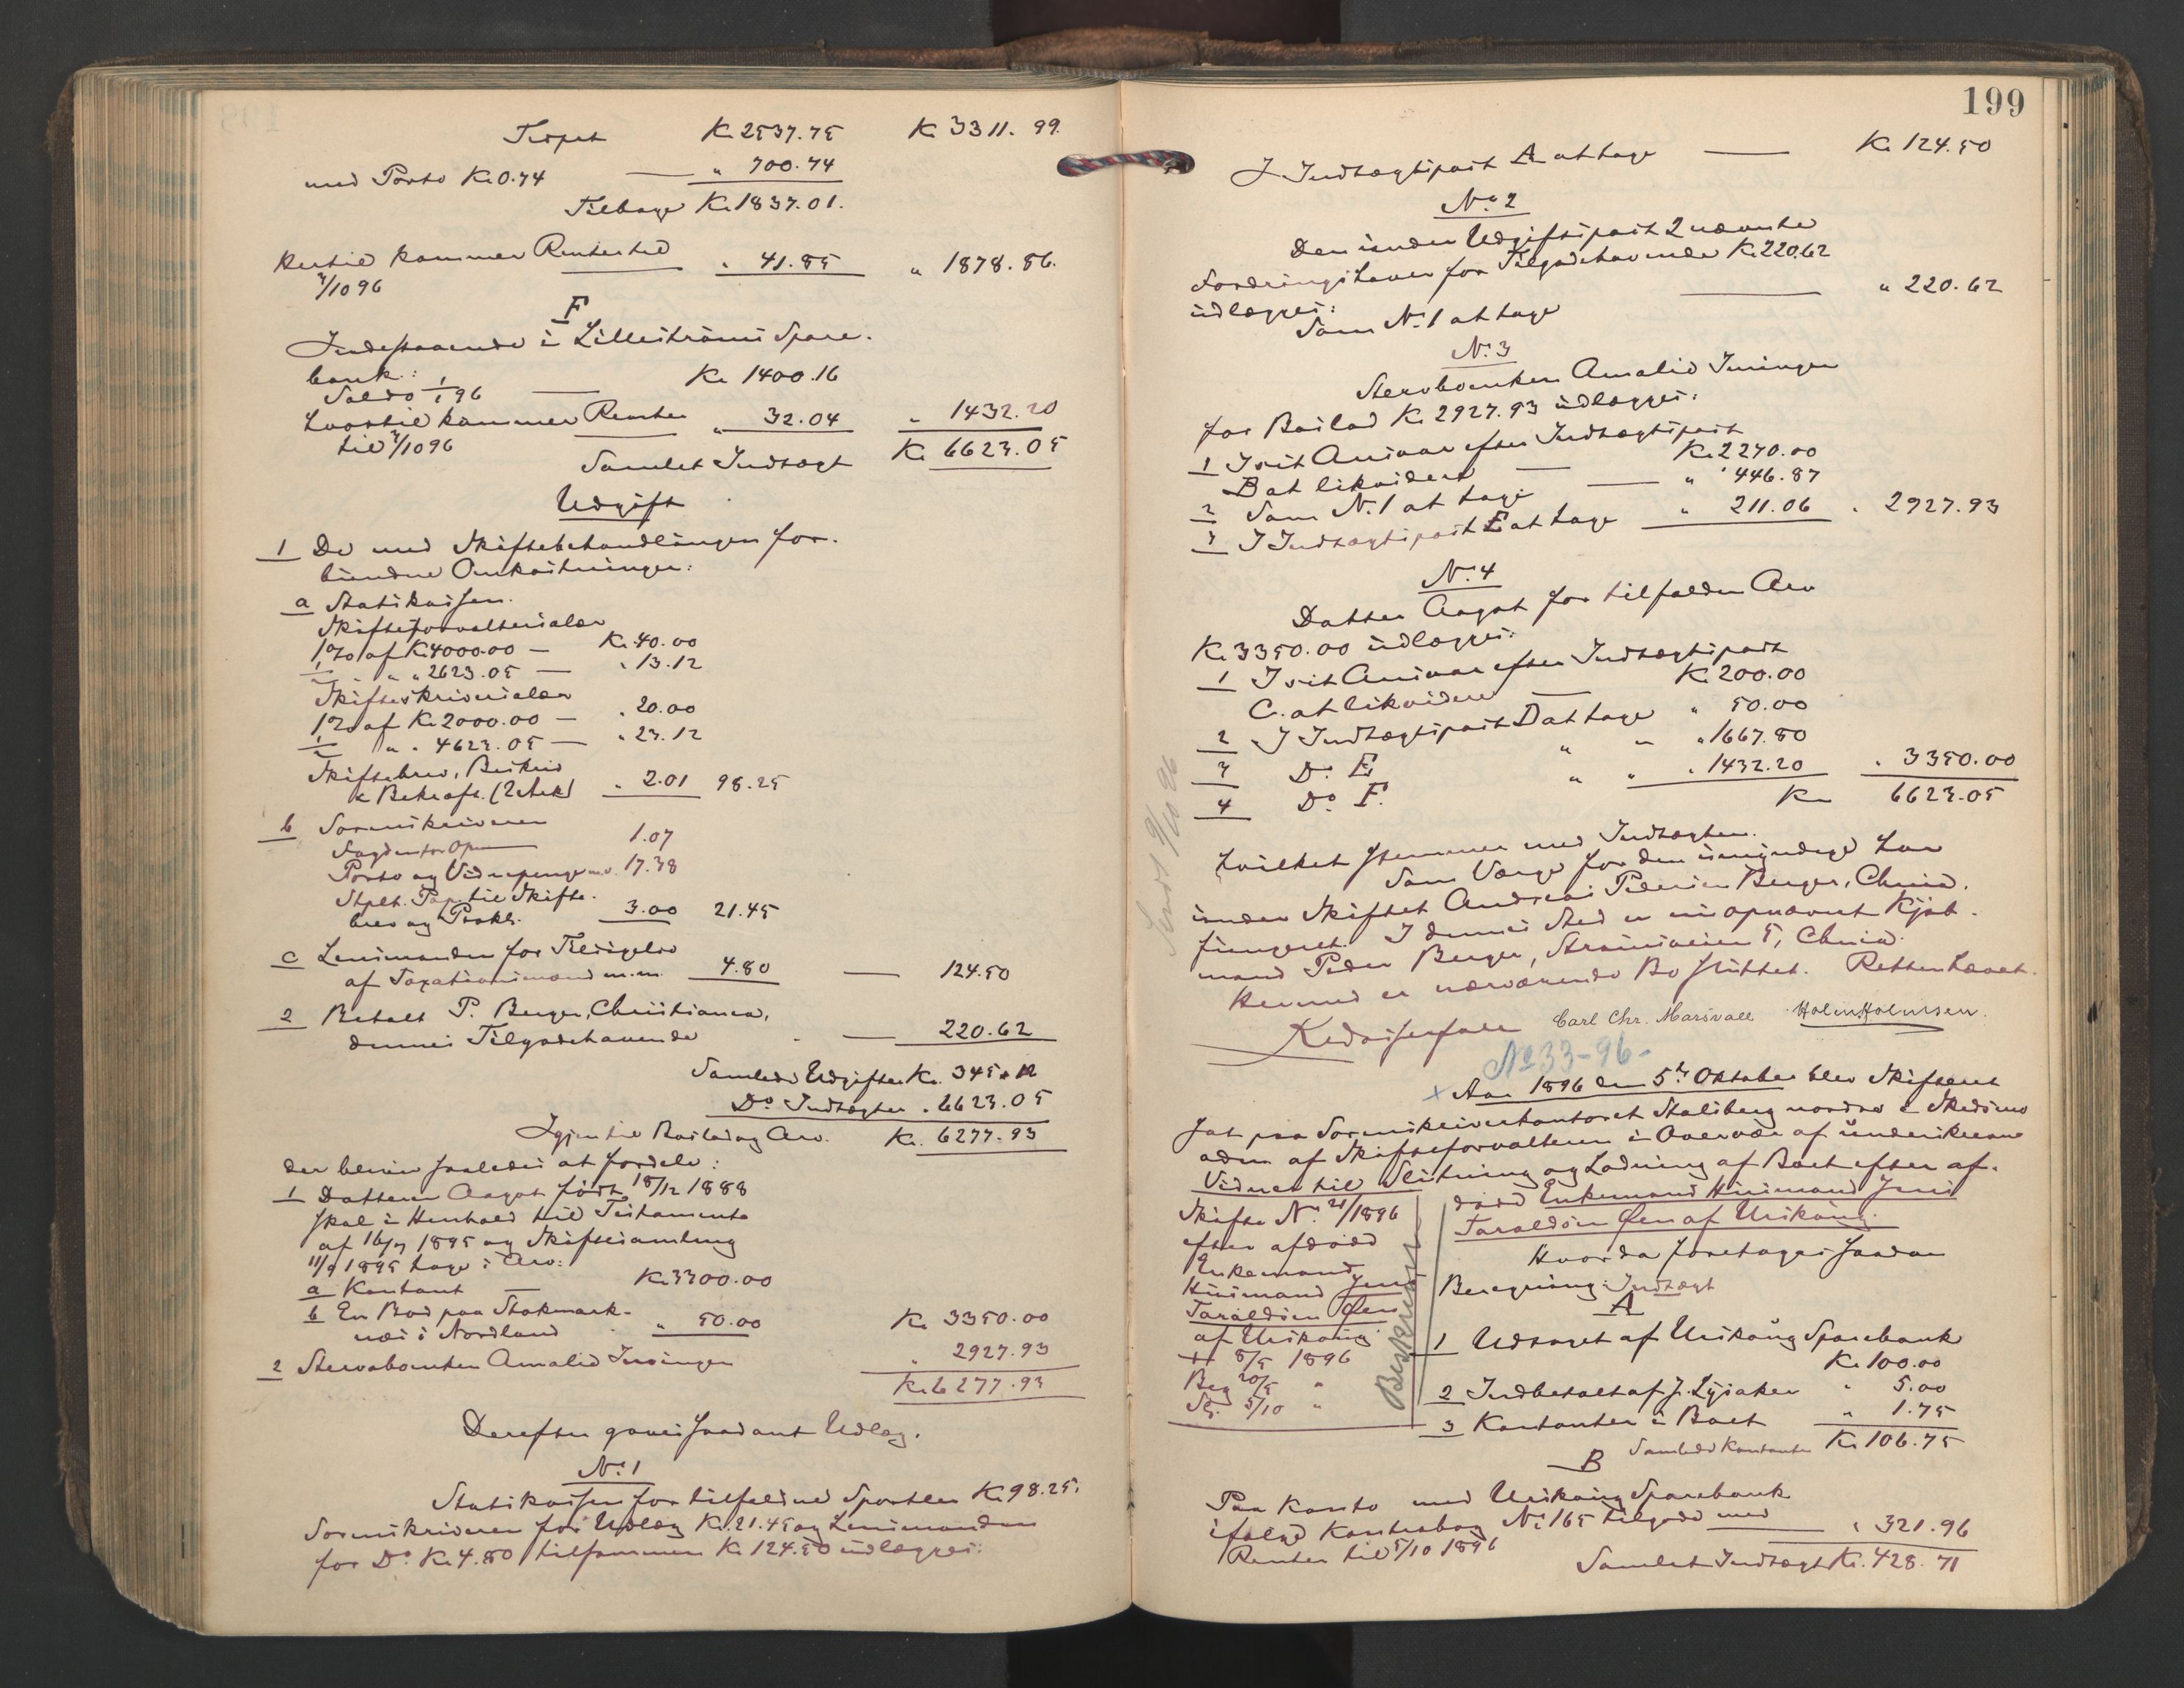 Kr 2537.75 Kr 3311.99
med Porto Kr 0.74 — " 700.74
Tilbage Kr 1837.01.
hertil kommer Renter til " 41.85 " 1878.86.
3/10 96
F
Indestaaende i Lillestrøms Spare-
bank:
Saldo 1/1 96 — Kr 1400.16
hvortil kommer Renter " 32.04 " 1432.20
til 3/10 96
Samlet Indtægt Kr 6623.05
Udgift
1 De med Skiftebehandlingen for-
bundne Omkostninger:
a Statskassen.
Skifteforvaltersalær
1% af Kr 4000.00 — Kr 40.00
½ " " " 2623.05 — " 13.12
Skifteskriversalær
1% af Kr 2000.00 — " 20.00
½ " " 4623.05 — " 23.12
Skiftebrev, Beskred
& Bekræft. (2 Ark) " 2.01 98.25
b Sorenskriveren
1.07
Porto og Vidnepenge m.v. 17.38
Stplt. Pap. til Skifte-
brev og Prokl. 3.00 21.45
c Lensmanden for Tilsigelse
af Taxationsmænd m.m. 4.80 — 124.50
2 Betalt P. Berger, Christiania,
dennes Tilgodehavende — 220.62
Samlede Udgifter Kr. 345.12
Do Indtægter " 6623.05
Igjen til Boslod og Arv. Kr. 6277.93
der bliver saaledes at fordele:
1 Datteren Aagot født 18/12 1888
skal i Henhold til Testamente
af 16/7 1895 og Skiftesamling
11/9 1895 tage i Arv:
a Kontant — Kr 3300.00
b En Bod paa Stokmark-
næs i Nordland " 50.00 Kr 3350.00
2 Stervboenken Amalie Iversen " 2927.93
Kr 6277.93
Derefter gøres saadant Udlæg.
No 1
Statskassen for tilfaldne Sportler Kr 98.25,
Sorenskriveren for Udlæg Kr. 21.45 og Lensmanden
for Do Kr 4.80 tilsammen Kr 124.50 udlægges:
199
I Indtægtspost A at tage — Kr 124.50
No 2
Den under Udgiftspost 2 nævnte
Fordringshaver for Tilgodehavende Kr 220.62
udlægges:
Som No 1 at tage — " 220.62
No 3
Stervboenken Amalie Iversen
for Boslod Kr 2927.93 udlægges:
1 I sit Ansvar efter Indtægtspost
B at likvidere — Kr 2270.00
2 Som No 1 at tage — " 446.87
3 I Indtægtspost E at tage " 211.06 " 2927.93
No 4
Datter Aagot for tilfalden Arv
Kr 3350.00 udlægges:
1 I sit Ansvar efter Indtægtspost
C. at likvidere — Kr 200.00
2 I Indtægtspost D at tage " 50.00
3 Do E " " " 1667.80
4 Do F. " " " 1432.20 " 3350.00
Kr 6623.05
hvilket stemmer med Indtægten.
Som Værge for den umyndige har
under Skiftet Andreas Pedersen Berger, Chria.
fungeret. I dennes Sted er nu opnævnt Kjøb-
mand Peder Berger, Strømsveien 5, Chria.
Hermed er nærværende Bo sluttet. Retten hævet.
Carl Chr. Marsvall Holm Holmsen.
No 33-96-
x Aar 1896 den 5te Oktober blev Skifteret
sat paa Sorenskriverkontoret Stalsberg nordre i Skedsmo
adm. af Skifteforvalteren i Overvær af underskrevne
Vidner til Slutning og Lodning af Boet efter af-
Skifte No 21/1896
efter afdøde
Enkemand
Husmand Jens
Taraldsen Øen
af Urskoug
† 8/5 1896
Beg 20/5 "
Sl. 5/10 "
Beskreven
døde Enkemand Husmand Jens
Taraldsen Øen af Urskoug.
Hvorda foretoges saadan
Beregning: Indtægt
A
1 Udtaget af Urskoug Sparebank
Kr 100.00
2 Indbetalt af J. Lysaker " 5.00
3 Kontanter i Boet " 1.75
Samlede Kontanter Kr 106.75
B
Paa Konto med Urskoug Sparebank
ifølge Kontrabog No 165 tilgode med
Renter til 5/10 1896 — " 321.96
Samlet Indtægt Kr. 428.71